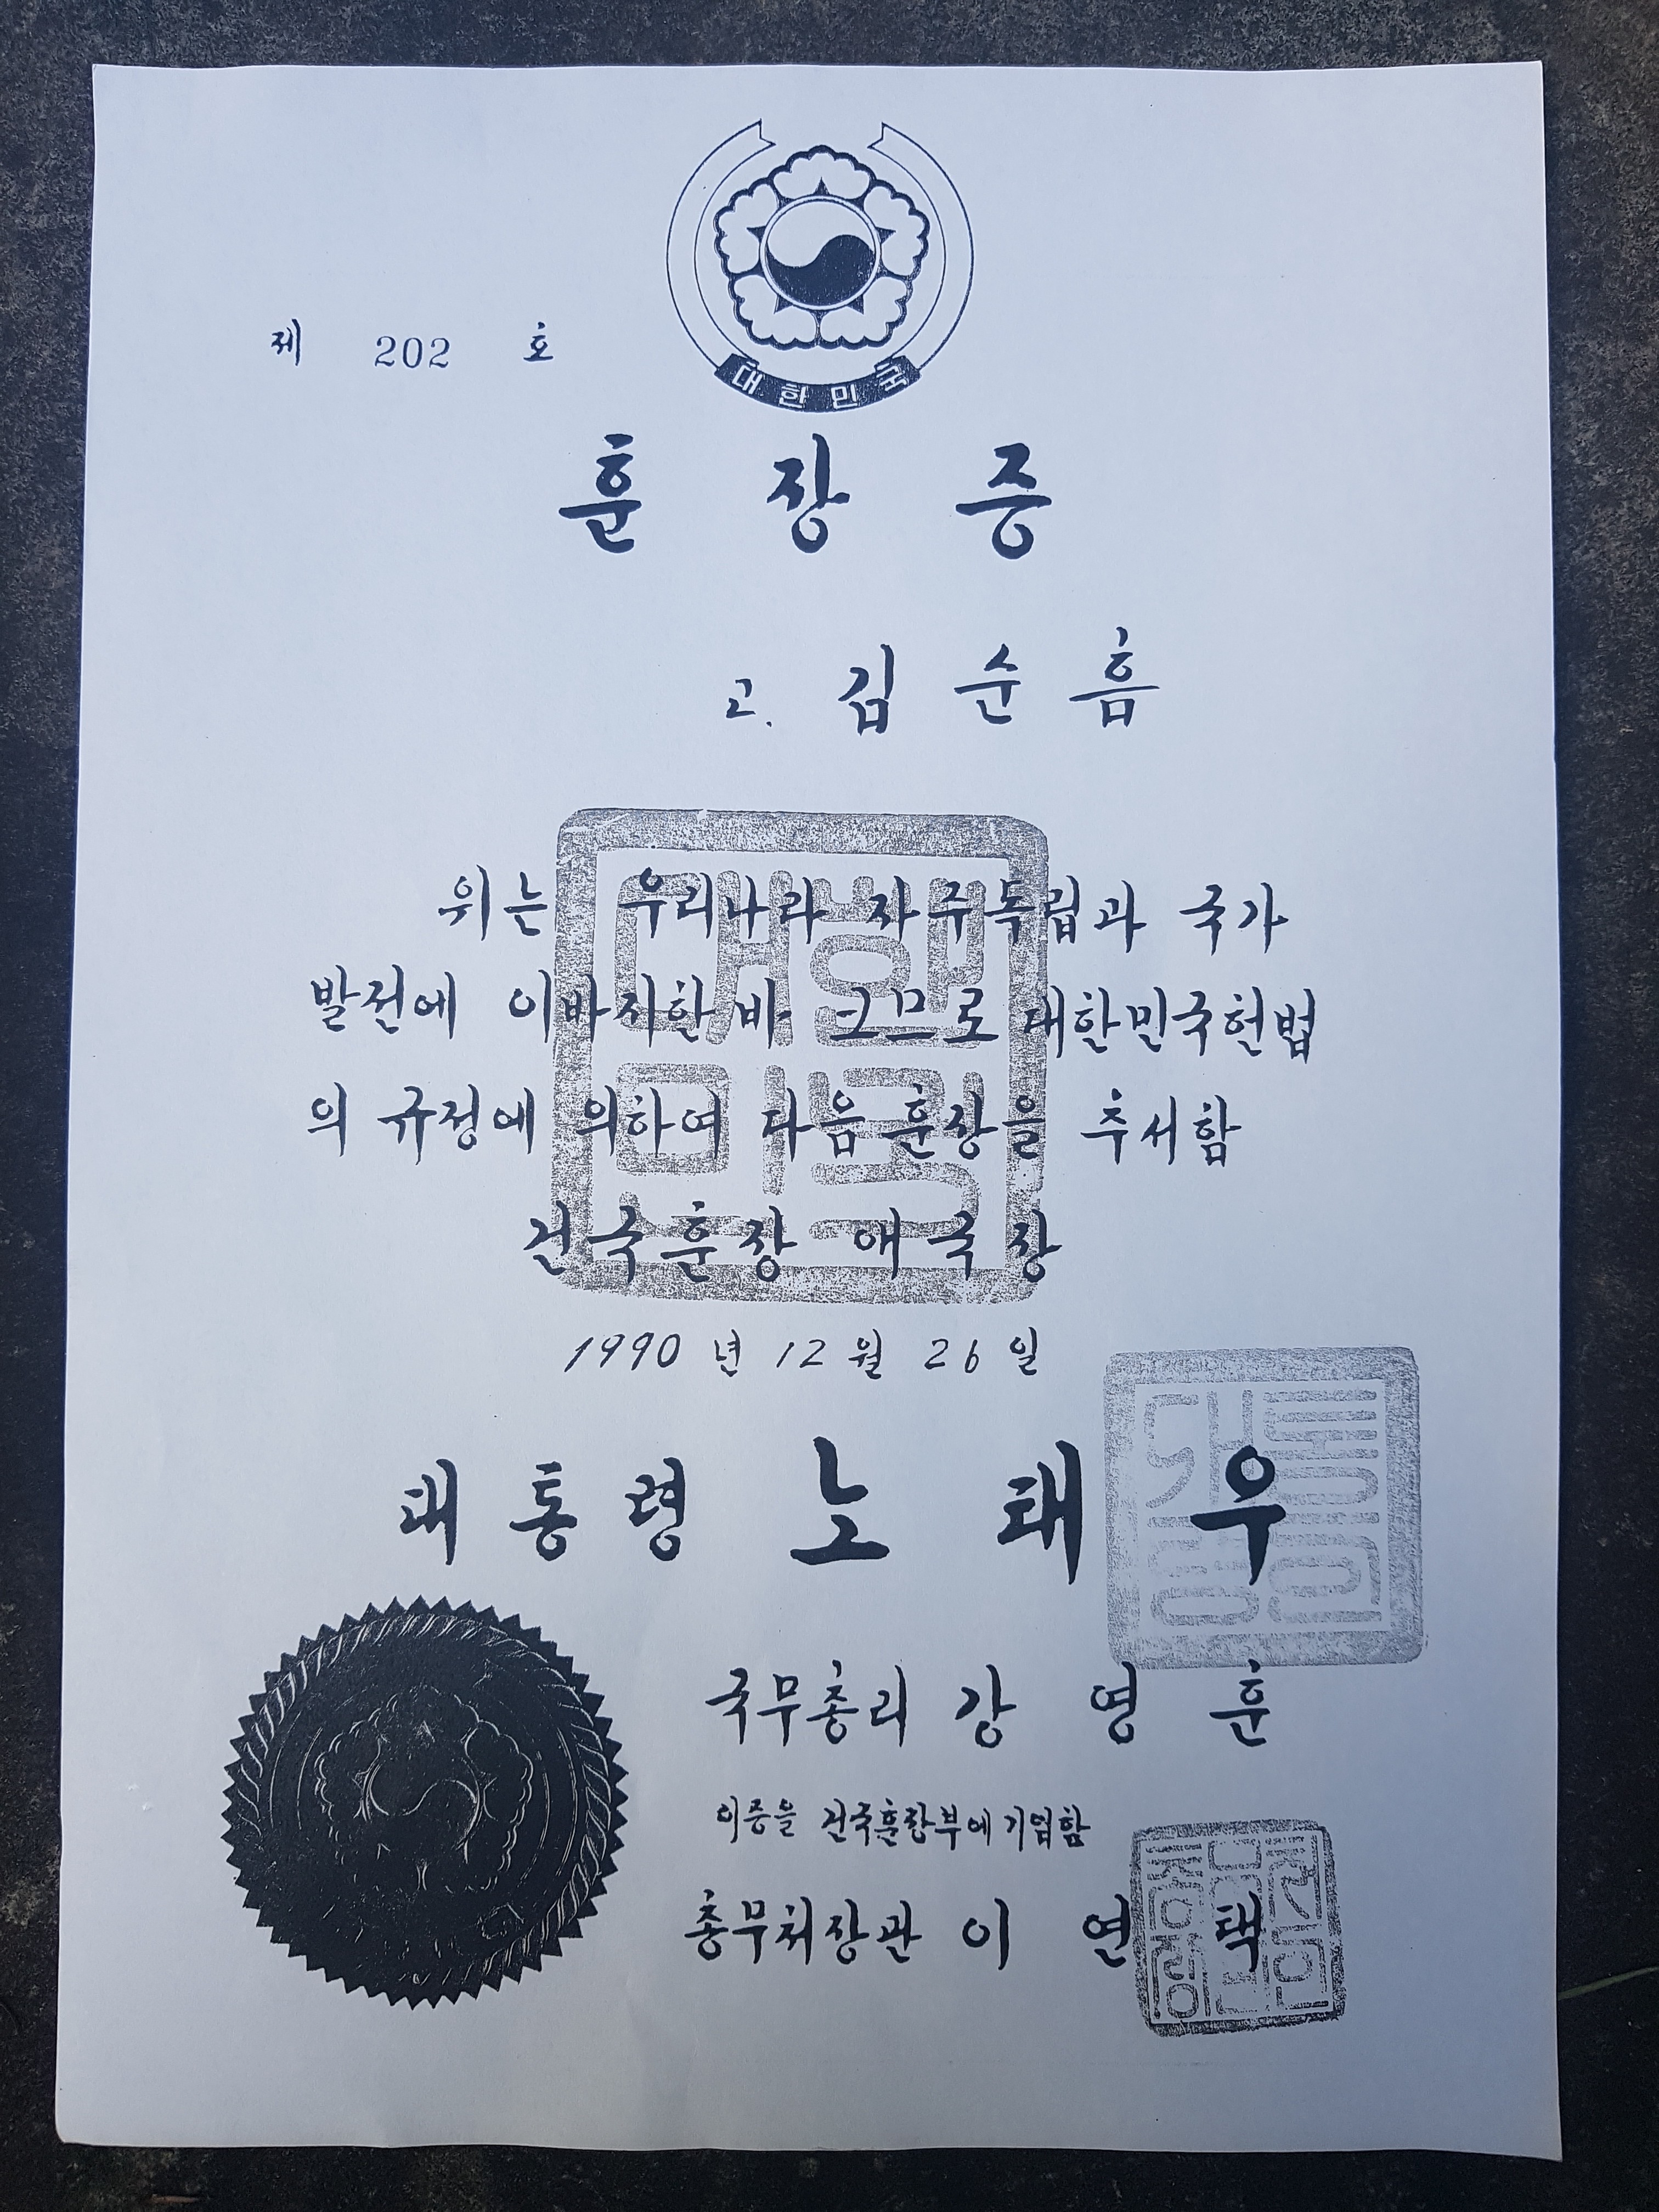 대한민국
제 202 호
훈장증
고. 김순흠
위는 우리나라 자주독립과 국가
발전에 이바지한 바 크므로 대한민국헌법
의 규정에 의하여 다음 훈장을 추서함
건국훈장 애국장
1990년 12월 26일
대통령 노태우
국무총리 강영훈
이증을 건국훈장부에 기입함
총무처장관 이연택